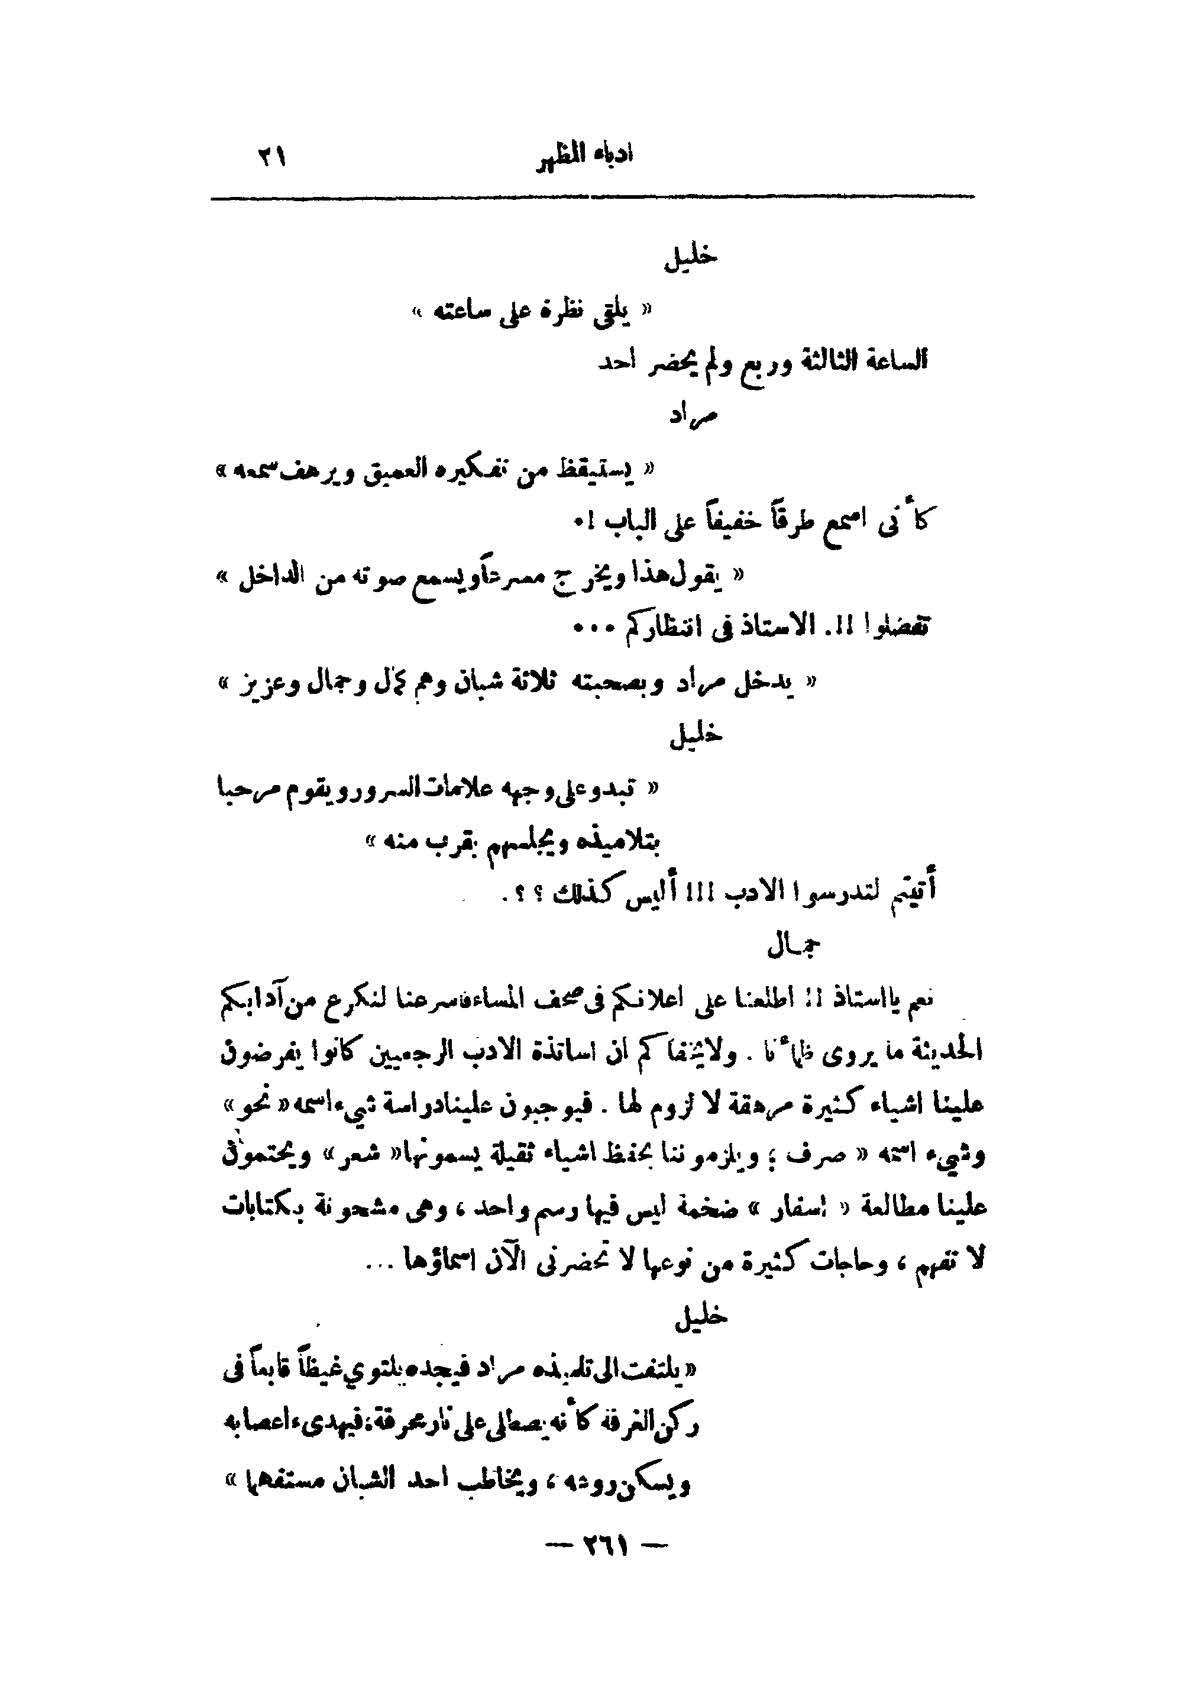 ادباء المظهر ٢١
خليل
« يلقى نظرة على ساعته »
الساعة الثالثة وربع ولم يحضر احد
مراد
« يستيقظ من تفكيره العميق ويرهف سمعه »
كأنى اسمع طرقاً خفيفاً على الباب !.
« يقول هذا ويخرج مسرعاً ويسمع صوته من الداخل »
تفضلوا !!. الاستاذ فى انتظاركم ...
« يدخل مراد وبصحبته ثلاثة شبان وهم كمال وجمال وعزيز »
خليل
« تبدو على وجهه علامات السرور ويقوم مرحبا
بتلاميذه ويجلسهم بقرب منه »
أتيتم لتدرسوا الادب !!! أليس كذلك ؟ ؟ .
جمال
نعم يا استاذ !! اطلعنا على اعلانكم فى صحف المساء فاسرعنا لنكرع من آدابكم
الحديثة ما يروى ظمأنا . ولا يخفاكم ان اساتذة الادب الرجعيين كانوا يفرضون
علينا اشياء كثيرة مرهقة لا لزوم لها . فيوجبون علينا دراسة شيء اسمه « نحو »
وشيء اسمه « صرف ؛ ويلزموننا بحفظ اشياء ثقيلة يسمونها « شعر » ويحتمون
علينا مطالعة « اسفار » ضخمة ليس فيها رسم واحد ، وهى مشحونة بكتابات
لا تفهم ، وحاجات كثيرة من نوعها لا تحضرنى الآن اسماؤها ...
خليل
« يلتفت الى تلميذه مراد فيجده يلتوي غيظاً قابعاً فى
ركن الغرفة كأنه يصطلى على نار محرقة ، فيهدىء اعصابه
ويسكن روعه ، ويخاطب احد الشبان مستفهما »
— ٢٦١ —